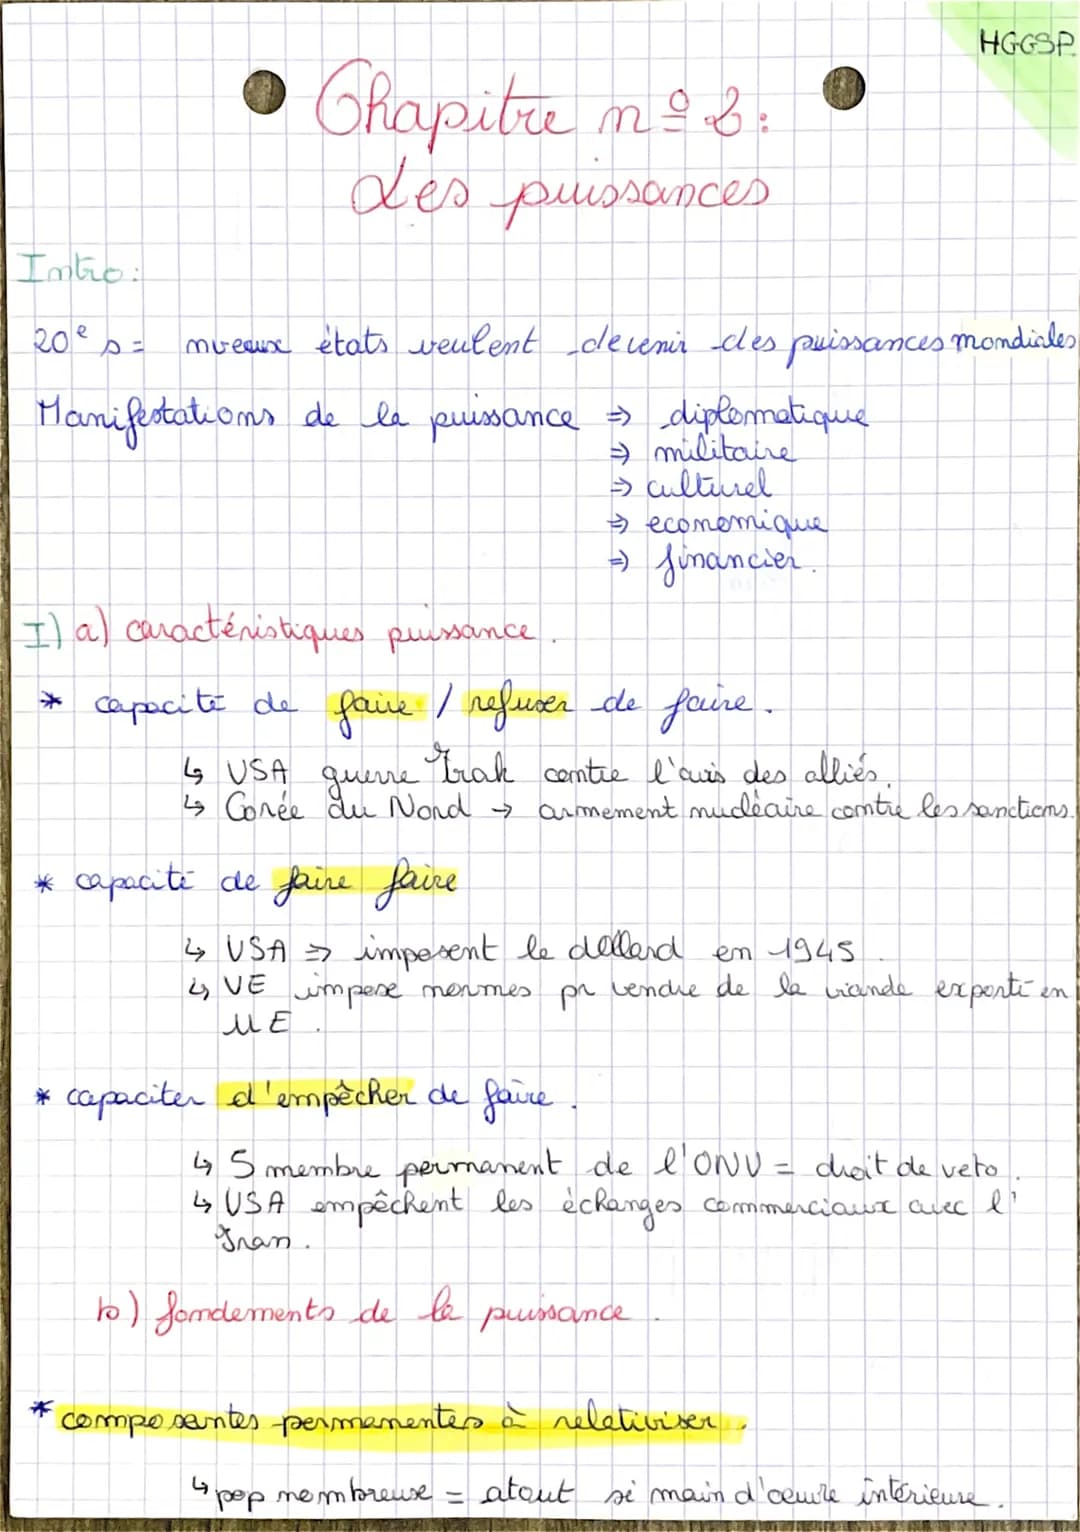 HGGSP.
Chapitre nº 2:
Les puissances
Intro:
20e s = nveaux états veulent devenir des puissances mondiales
Manifestations de la puissance => diplomatique
=> militaire
=> culturel
=> economique
=> financier.
I) a) caractéristiques puissance.
* capacité de faire / refuser de faire.
↳ USA guerre Irak contre l'avis des alliés.
↳ Corée du Nord → armement nucléaire contre les sanctions.
* capacité de faire faire
↳ USA => imposent le dollard en 1945.
↳ UE impose normes pr vendre de la viande exporté en
UE.
* capaciter d'empêcher de faire.
↳ 5 membre permanent de l'ONU = droit de veto.
↳ USA empêchent les échanges commerciaux avec l'
Iran.
b) fondements de la puissance.
* composantes permanentes à relativiser.
↳ pop nombreuse = atout si main d'œuvre intérieure.